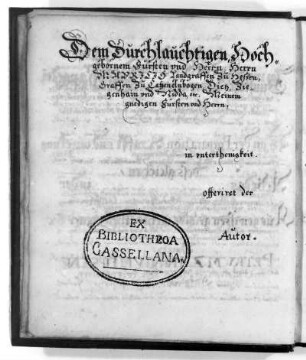 Dem Durchlauchtigen, Hoch,
gebornem Fursten und Herrn, Herrn
MAURICIO Landgraffen Zu Hessen,
Graffen Zu Catzenelnbogen Dietz, Zie,
genhain und Nidda etc. Meinem
gnedigen Fursten und Herrn,
in unterthenigkeit.
offeriret der
Autor.
EX
BIBLIOTHECA
CASSELLANA.